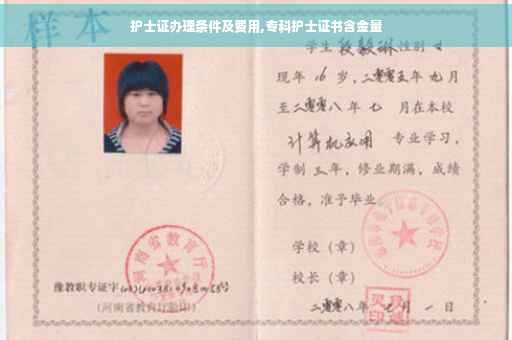 护士证办理条件及要用,专科护士证书含金量
样本
学生 段毅琳 性别 女
现年 16 岁,二零零五年 九 月
至二零零八年 七 月在本校
计算机应用 专业学习,
学制 三 年,修业期满,成绩
合格,准予毕业
学校(章)
校长(章)
二零零八年 七 月 一 日
河南省教育厅
豫教职专证字
(河南省教育厅验印)